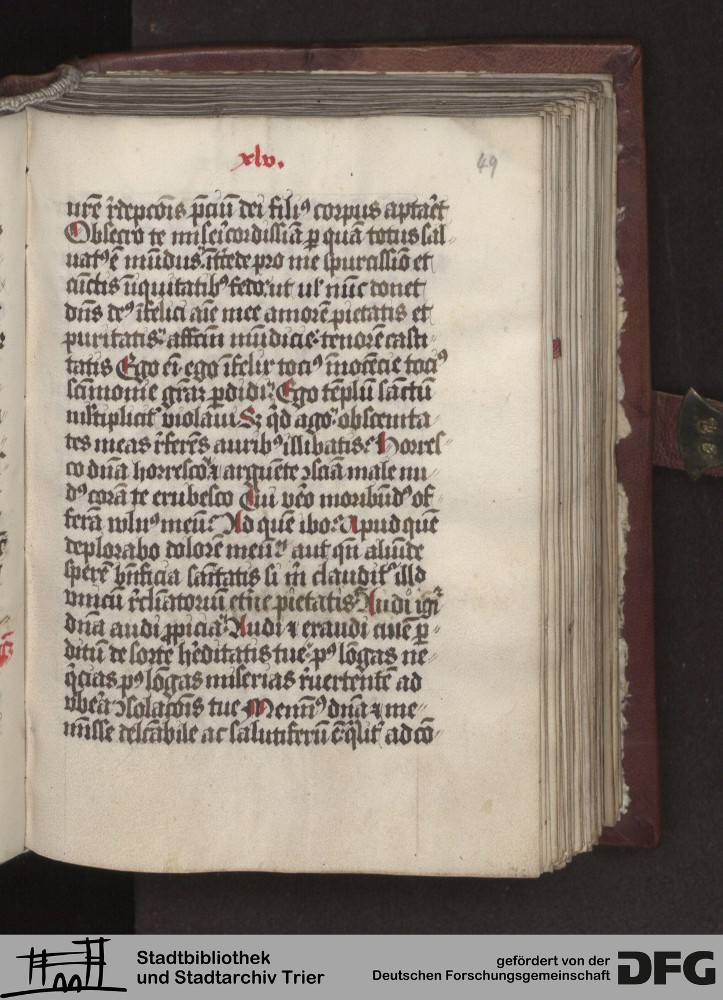 xlv.
49
nr̄e r̄depcōis p̄ciū dei filiꝰ corpus aptar̄et
Obsecro te mis̄eicordissīa ꝑ quā totus sal
uatꝰ ē mūdus. īt̄cede pro me spurcissīo et
cūctis īiquitatibꝰ fedo. ut ul' nūc donet
dn̄s deꝰ īfelici aīe mee amorē pietatis et
puritatis. affc̄m mūdicie. tenorē casti
tatis Ego eī ego īfelix tociꝰ īnocēcie tociꝰ
sc̄īmonie grāȝ ꝑdidi. Ego tēplū sāctū
mltiplicit' violaui Sȝ qd ago. obscenita
tes meas r̄ferēs auribꝰ illibatis. Horres
co dn̄a horresco. ⁊ arguēte ɔsciā male nu
dꝰ corā te erubesco Cui v̄o moribūdꝰ of
ferā vulnꝰ meū. Ad quē ibo. Apud quē
deplorabo dolorē meū. aut qn̄ aliūde
sperē bn̄ficia sanītatis si m̄ claudit' illd
vnicū r̄cliatoriū et̄ne pietatis. Audi igr̄
dn̄a audi ꝓpicia. Audi ⁊ exaudi ciuē ꝑ
ditū de sorte hēditatis tue. pꝰ lōgas ne
q̄cias pꝰ lōgas miserias r̄uertentē ad
vbera ɔsolacōis tue Memīꝰ dn̄a ⁊ me
mīsse delc̄abile ac salutiferū ē. qn̄t ad cō
Stadtbibliothek
und Stadtarchiv Trier
gefördert von der
Deutschen Forschungsgemeinschaft
DFG